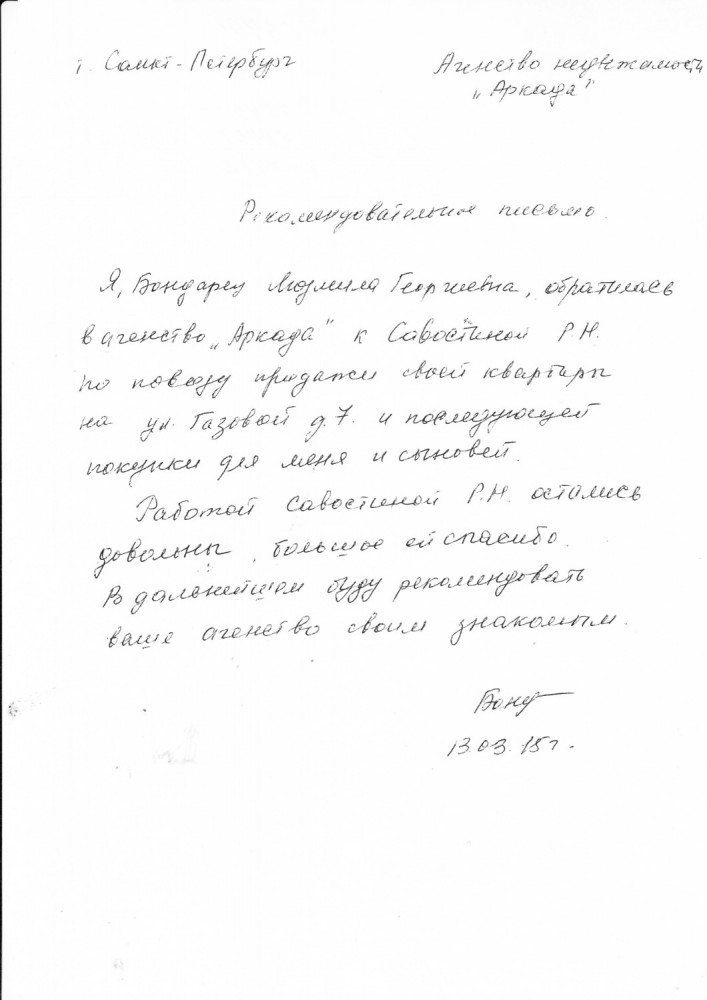 г. Санкт-Петербург
Агенство недвижимости
„Аркада"
Рекомендовательное письмо.
Я, Бондарец Людмила Георгиевна, обратилась
в агенство „Аркада" к Савостиной Р.Н.
по поводу продажи своей квартиры
на ул. Газовой д.7. и последующей
покупки для меня и сыновей.
Работой Савостиной Р.Н. остались
довольны, большое ей спасибо.
В дальнейшем буду рекомендовать
ваше агенство своим знакомым.
Бонд
13.03.15г.